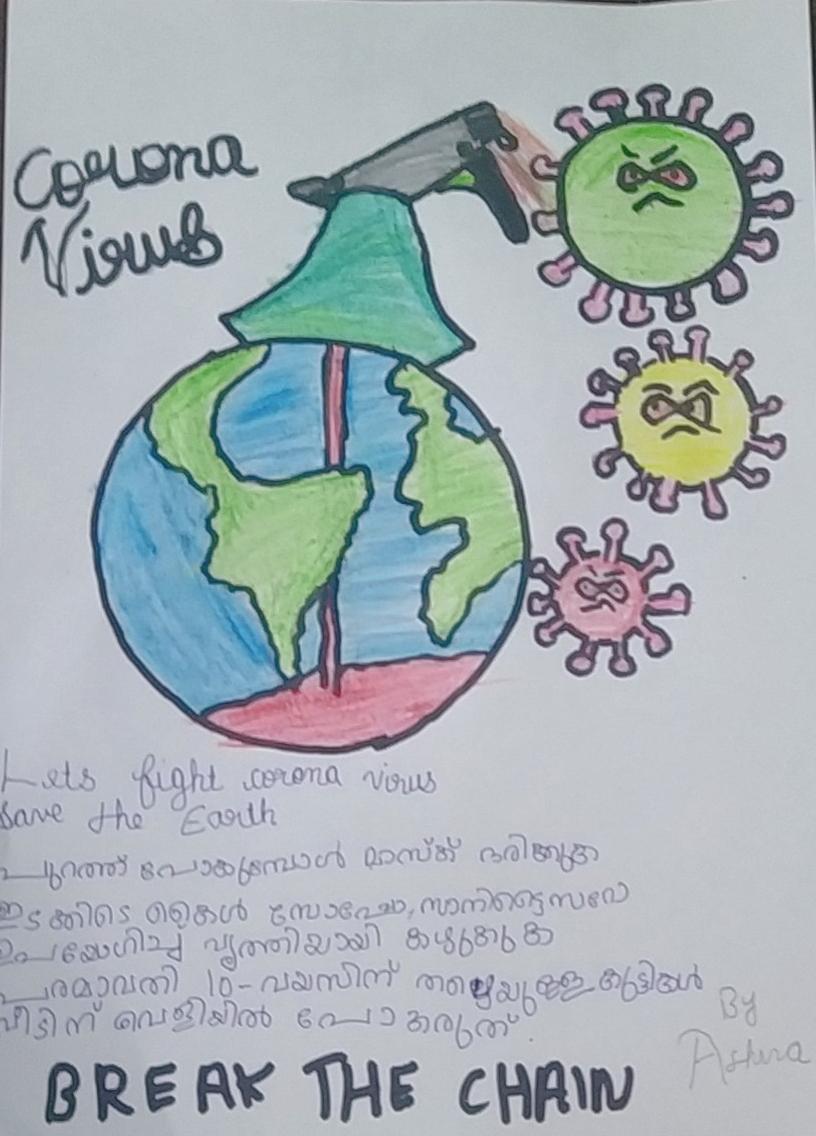 Corona
Virus
Lets fight corona virus
Save the Earth
പുറത്ത് പോകുമ്പോൾ മാസ്ക് ദരിക്കുക
ഇടക്കിടെ കൈകൾ സോപ്പോ, സാനിട്ടൈസറോ
ഉപയോഗിച്ച് വൃത്തിയായി കഴുകുക
പരമാവതി 10-വയസിന് തഴെയുള്ള കുട്ടികൾ
വീടിന് വെളിയിൽ പോകരുത്.
By
BREAK THE CHAIN